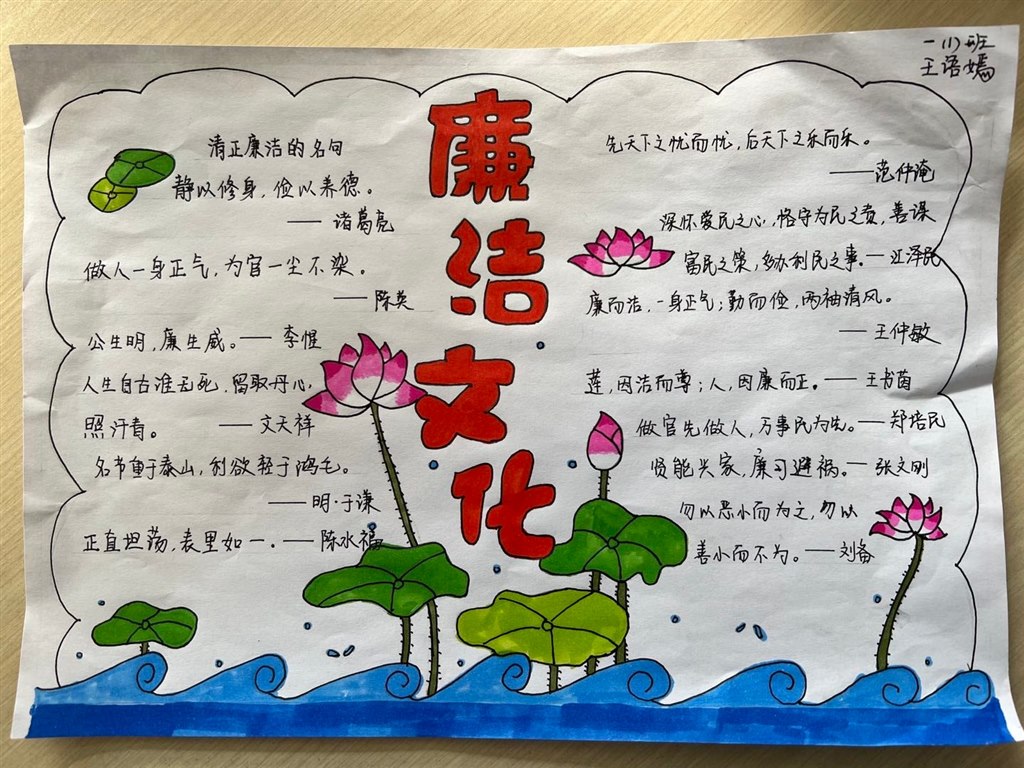 一(1)班
王语嫣
廉洁文化
清正廉洁的名句
静以修身,俭以养德。
——诸葛亮
做人一身正气,为官一尘不染。
——陈英
公生明,廉生威。——李惺
人生自古谁无死,留取丹心
照汗青。——文天祥
名节重于泰山,利欲轻于鸿毛。
——明·于谦
正直坦荡,表里如一。——陈水福
先天下之忧而忧,后天下之乐而乐。
——范仲淹
深怀爱民之心,恪守为民之责,善谋
富民之策,多办利民之事。—江泽民
廉而洁,一身正气;勤而俭,两袖清风。
——王仲敏
莲,因洁而尊;人,因廉而正。——王书茵
做官先做人,万事民为先。——郑培民
贤能兴家,廉可避祸。—张文刚
勿以恶小而为之,勿以
善小而不为。——刘备